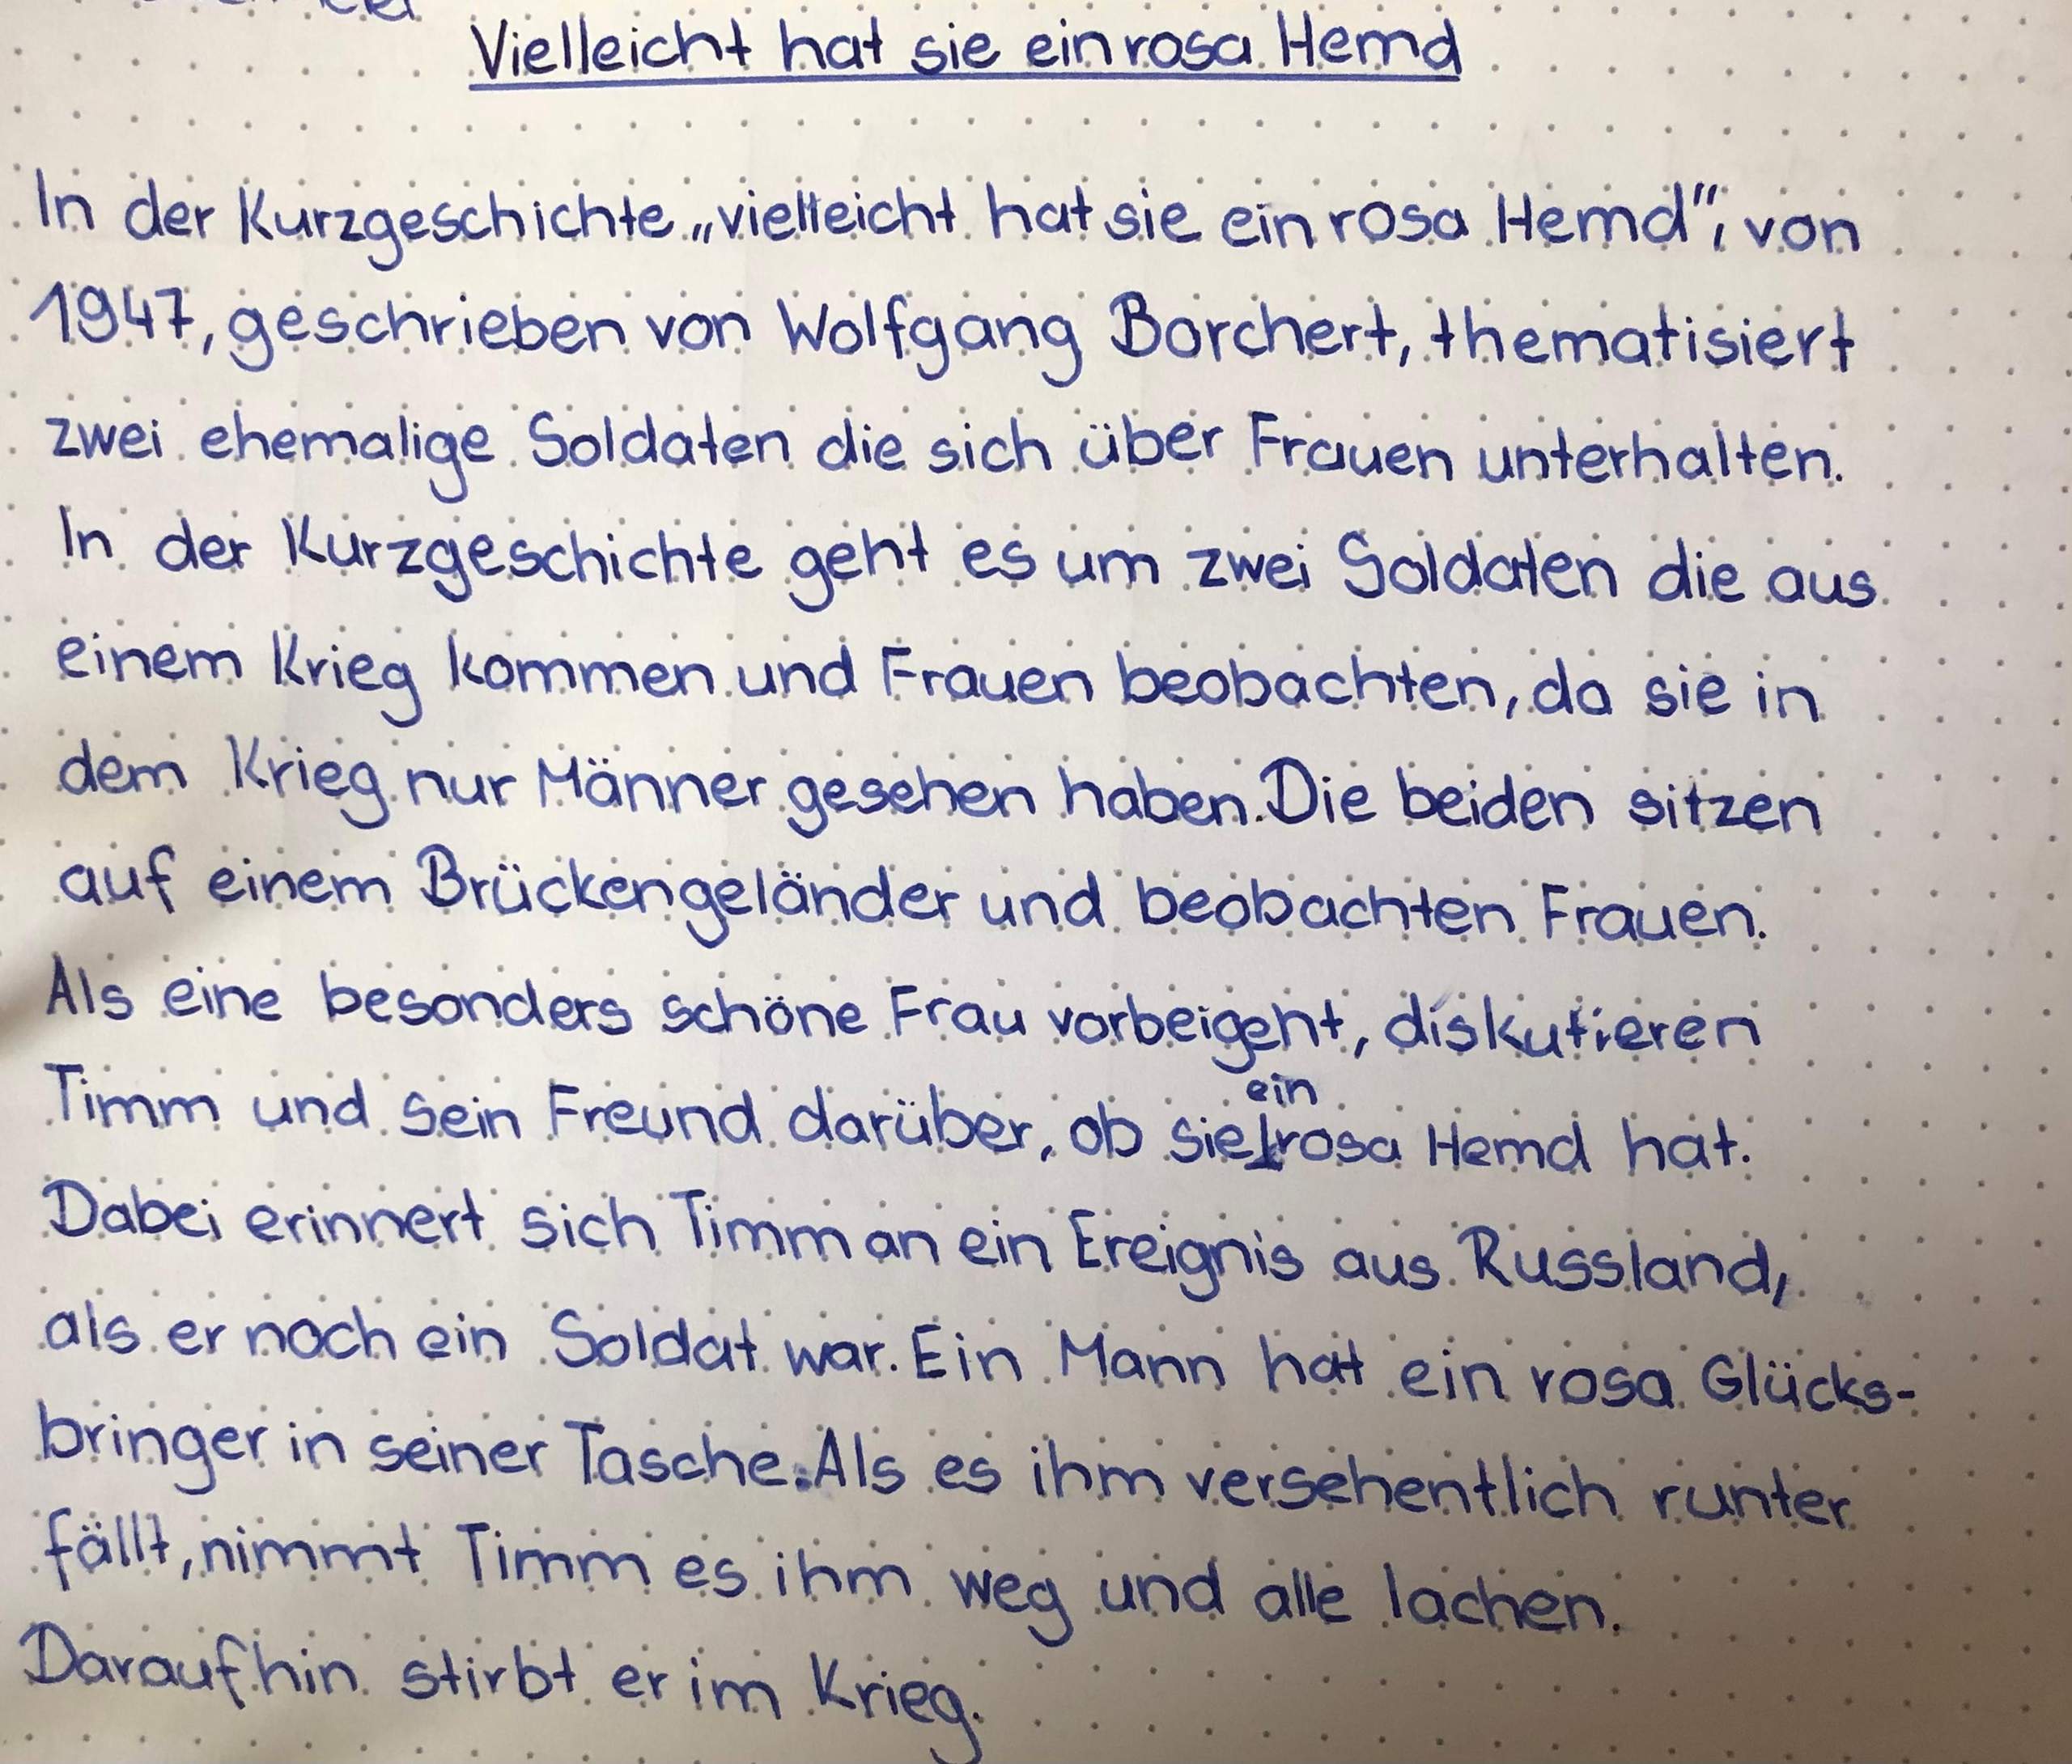 Vielleicht hat sie ein rosa Hemd
In der Kurzgeschichte „vielleicht hat sie ein rosa Hemd", von
1947, geschrieben von Wolfgang Borchert, thematisiert
zwei ehemalige Soldaten die sich über Frauen unterhalten.
In der Kurzgeschichte geht es um zwei Soldaten die aus
einem Krieg kommen und Frauen beobachten, da sie in
dem Krieg nur Männer gesehen haben. Die beiden sitzen
auf einem Brückengeländer und beobachten Frauen.
Als eine besonders schöne Frau vorbeigeht, diskutieren
Timm und sein Freund darüber, ob sie ein rosa Hemd hat.
Dabei erinnert sich Timm an ein Ereignis aus Russland,
als er noch ein Soldat war. Ein Mann hat ein rosa Glücks-
bringer in seiner Tasche. Als es ihm versehentlich runter
fällt, nimmt Timm es ihm weg und alle lachen.
Daraufhin stirbt er im Krieg.